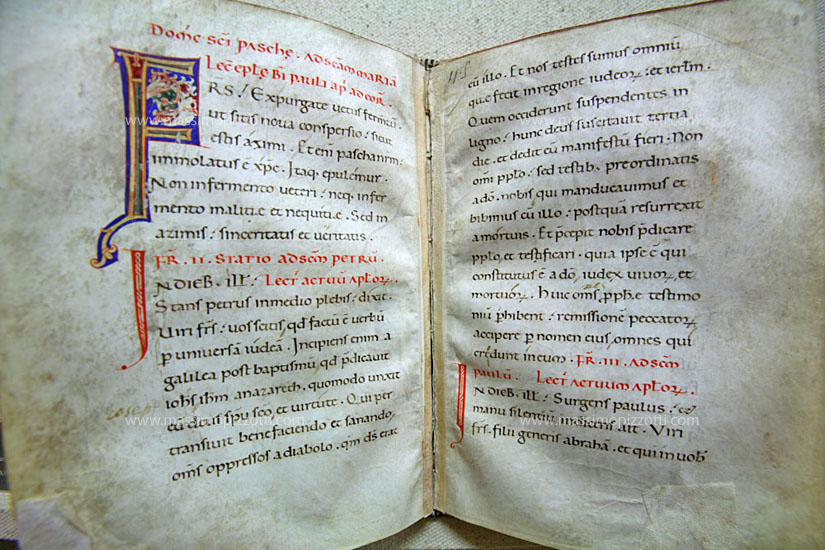 Domc sci pasche. Ad scam Maria
Lec eple Bi Pauli apl ad cor.
FRS: Expurgate uetus fermtu
ut sitis noua conspersio: sicut
estis azimi. Et eni pascha nrm
immolatus e xpc. Itaq. epulemur.
Non in fermento ueteri: neq. in fer
mento malitie et nequitie. Sed in
azimis: sinceritatis et ueritatis.
FR. II. Statio ad scm Petru.
IN DIEB. ILL: Lec actuu aplor.
Stans petrus in medio plebis: dixit.
Viri frs: uos scitis, qd factu e uerbu
p uniuersa iudea. Incipiens enim a
galilea post baptismu qd pdicauit
iohs ihm a nazareth, quomodo unxit
eu ds spu sco, et uirtute. Qui per
transiuit benefaciendo et sanando,
oms oppressos a diabolo, qm ds erat
cu illo. Et nos testes sumus omniu
que fecit in regione iudeor: et ierlm.
Quem occiderunt suspendentes in
ligno: hunc deus suscitauit tertia
die. et dedit eu manifestu fieri: Non
omi pplo: sed testib. preordinatis
a do. nobis qui manducauimus et
bibimus cu illo: postqua resurrexit
a mortuis. Et pcepit nobis pdicare
pplo, et testificari. quia ipse e qui
constitutus e a do, iudex uiuor, et
mortuor. Huic oms pphe testimo
niu phibent: remissione peccator
accipere p nomen eius, omnes qui
credunt in eum. FR. III. Ad scm
Paulu. Lec actuum aplor.
IN DIEB. ILL: Surgens paulus: et
manu silentiu indicens ait. Viri
frs. filii generis abraha. et qui in uob
www.massimopizzotti.com